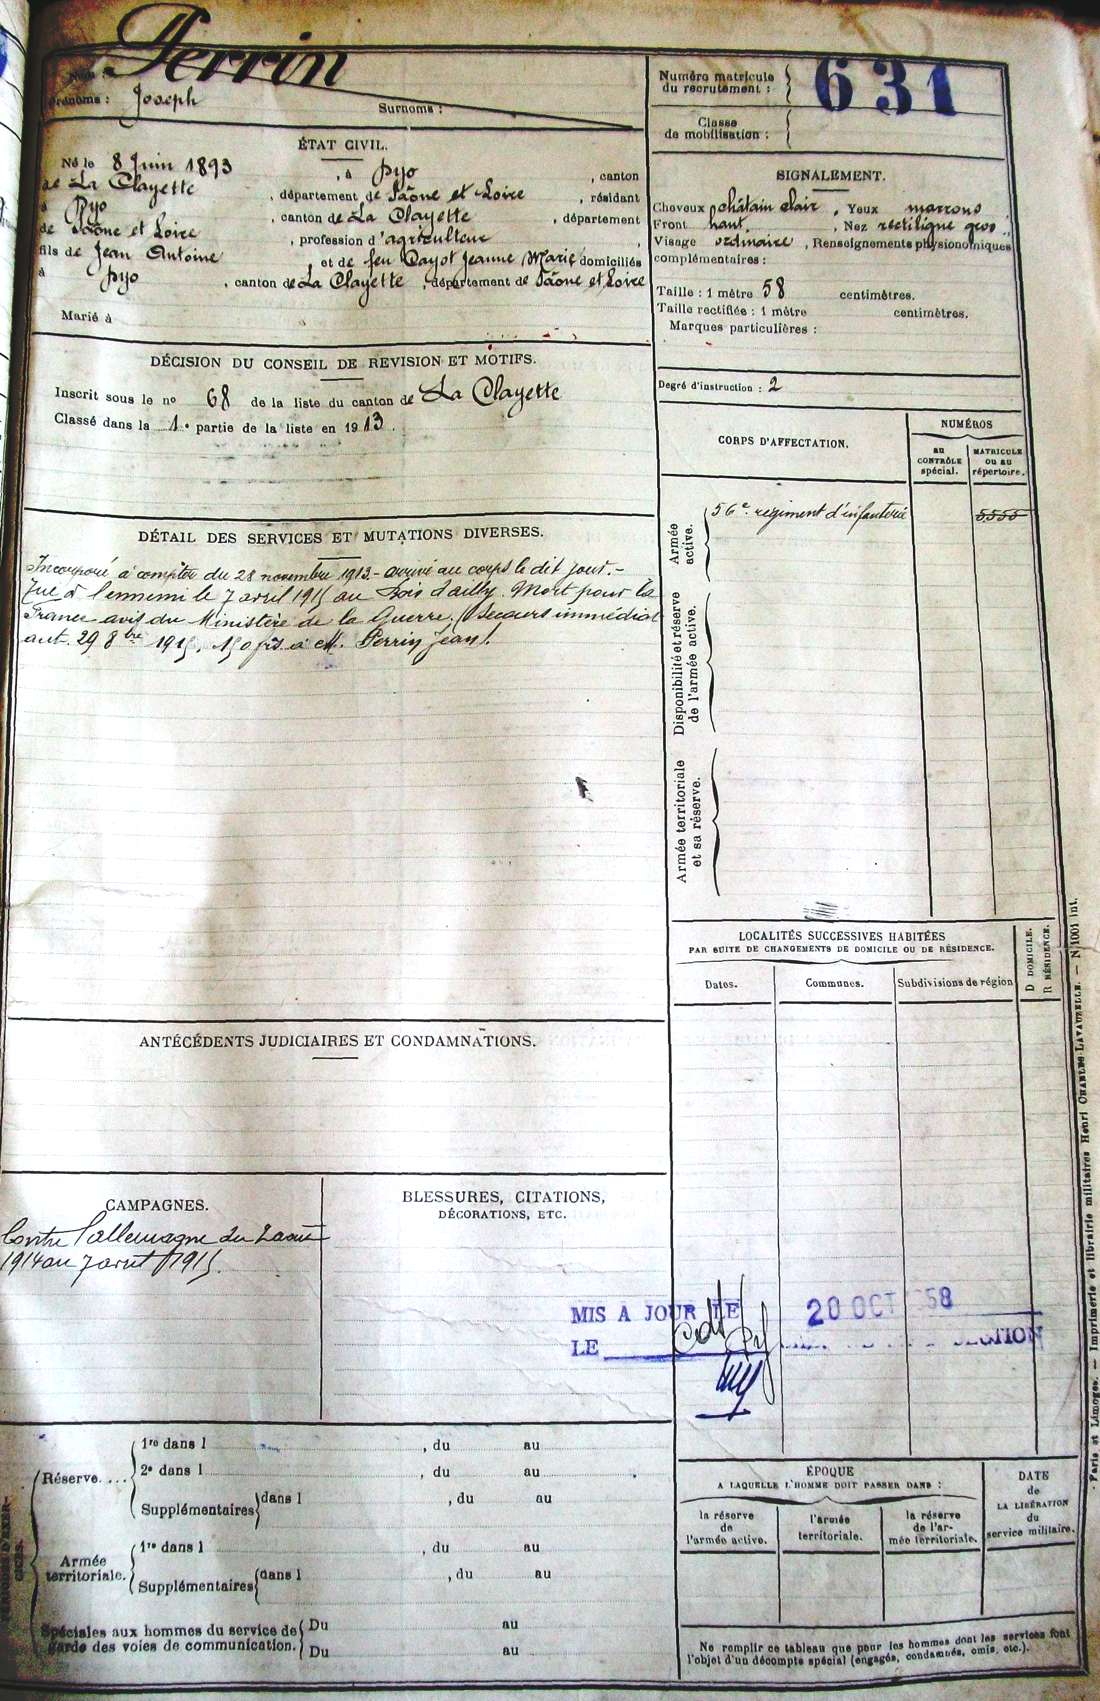 Perrin
Prénoms : Joseph Surnoms :
Numéro matricule
du recrutement : 631
Classe
de mobilisation :
ÉTAT CIVIL.
Né le 8 Juin 1893, à Dyo, canton
de La Clayette, département de Saône et Loire, résidant
à Dyo, canton de La Clayette, département
de Saône et Loire, profession d'agriculteur,
fils de Jean Antoine et de feu Dayot Jeanne Marie domiciliés
à Dyo, canton de La Clayette, département de Saône et Loire
Marié à
SIGNALEMENT.
Cheveux châtain clair, Yeux marrons
Front haut, Nez rectiligne gros
Visage ordinaire, Renseignements physionomiques
complémentaires :
Taille : 1 mètre 58 centimètres.
Taille rectifiée : 1 mètre centimètres.
Marques particulières :
Degré d'instruction : 2
DÉCISION DU CONSEIL DE REVISION ET MOTIFS.
Inscrit sous le no 68 de la liste du canton de La Clayette
Classé dans la 1e partie de la liste en 1913.
DÉTAIL DES SERVICES ET MUTATIONS DIVERSES.
Incorporé à compter du 28 novembre 1913 - arrivé au corps le dit jour. -
Tué à l'ennemi le 7 avril 1915 au Bois d'ailly. Mort pour la
France avis du Ministère de la Guerre. (Secours immédiat
aut. 29 8bre 1915, 150 frs à M. Perrin Jean).
CORPS D'AFFECTATION.
NUMÉROS
AU
CONTRÔLE
spécial.
MATRICULE
OU AU
répertoire.
Armée
active.
56e régiment d'infanterie
Disponibilité et réserve
de l'armée active.
Armée territoriale
et sa réserve.
LOCALITÉS SUCCESSIVES HABITÉES
PAR SUITE DE CHANGEMENTS DE DOMICILE OU DE RÉSIDENCE.
Dates. Communes. Subdivisions de région
D DOMICILE.
R RÉSIDENCE.
ANTÉCÉDENTS JUDICIAIRES ET CONDAMNATIONS.
CAMPAGNES.
Contre l'allemagne du 2 août
1914 au 7 avril 1915.
BLESSURES, CITATIONS,
DÉCORATIONS, ETC.
MIS A JOUR LE 20 OCT 58
LE SECTION
Réserve....
1re dans l , du au
2e dans l , du au
Supplémentaires dans l , du au
Armée
territoriale.
1re dans l , du au
Supplémentaires dans l , du au
Spéciales aux hommes du service de
garde des voies de communication.
Du au
Du au
ÉPOQUE
A LAQUELLE L'HOMME DOIT PASSER DANS :
la réserve
de
l'armée active.
l'armée
territoriale.
la réserve
de l'ar-
mée territoriale.
DATE
de
LA LIBÉRATION
du
service militaire.
Ne remplir ce tableau que pour les hommes dont les services font
l'objet d'un décompte spécial (engagés, condamnés, omis, etc.).
Paris et Limoges. — Imprimerie et librairie militaires Henri CHARLES-LAVAUZELLE. — N° 1001 int.